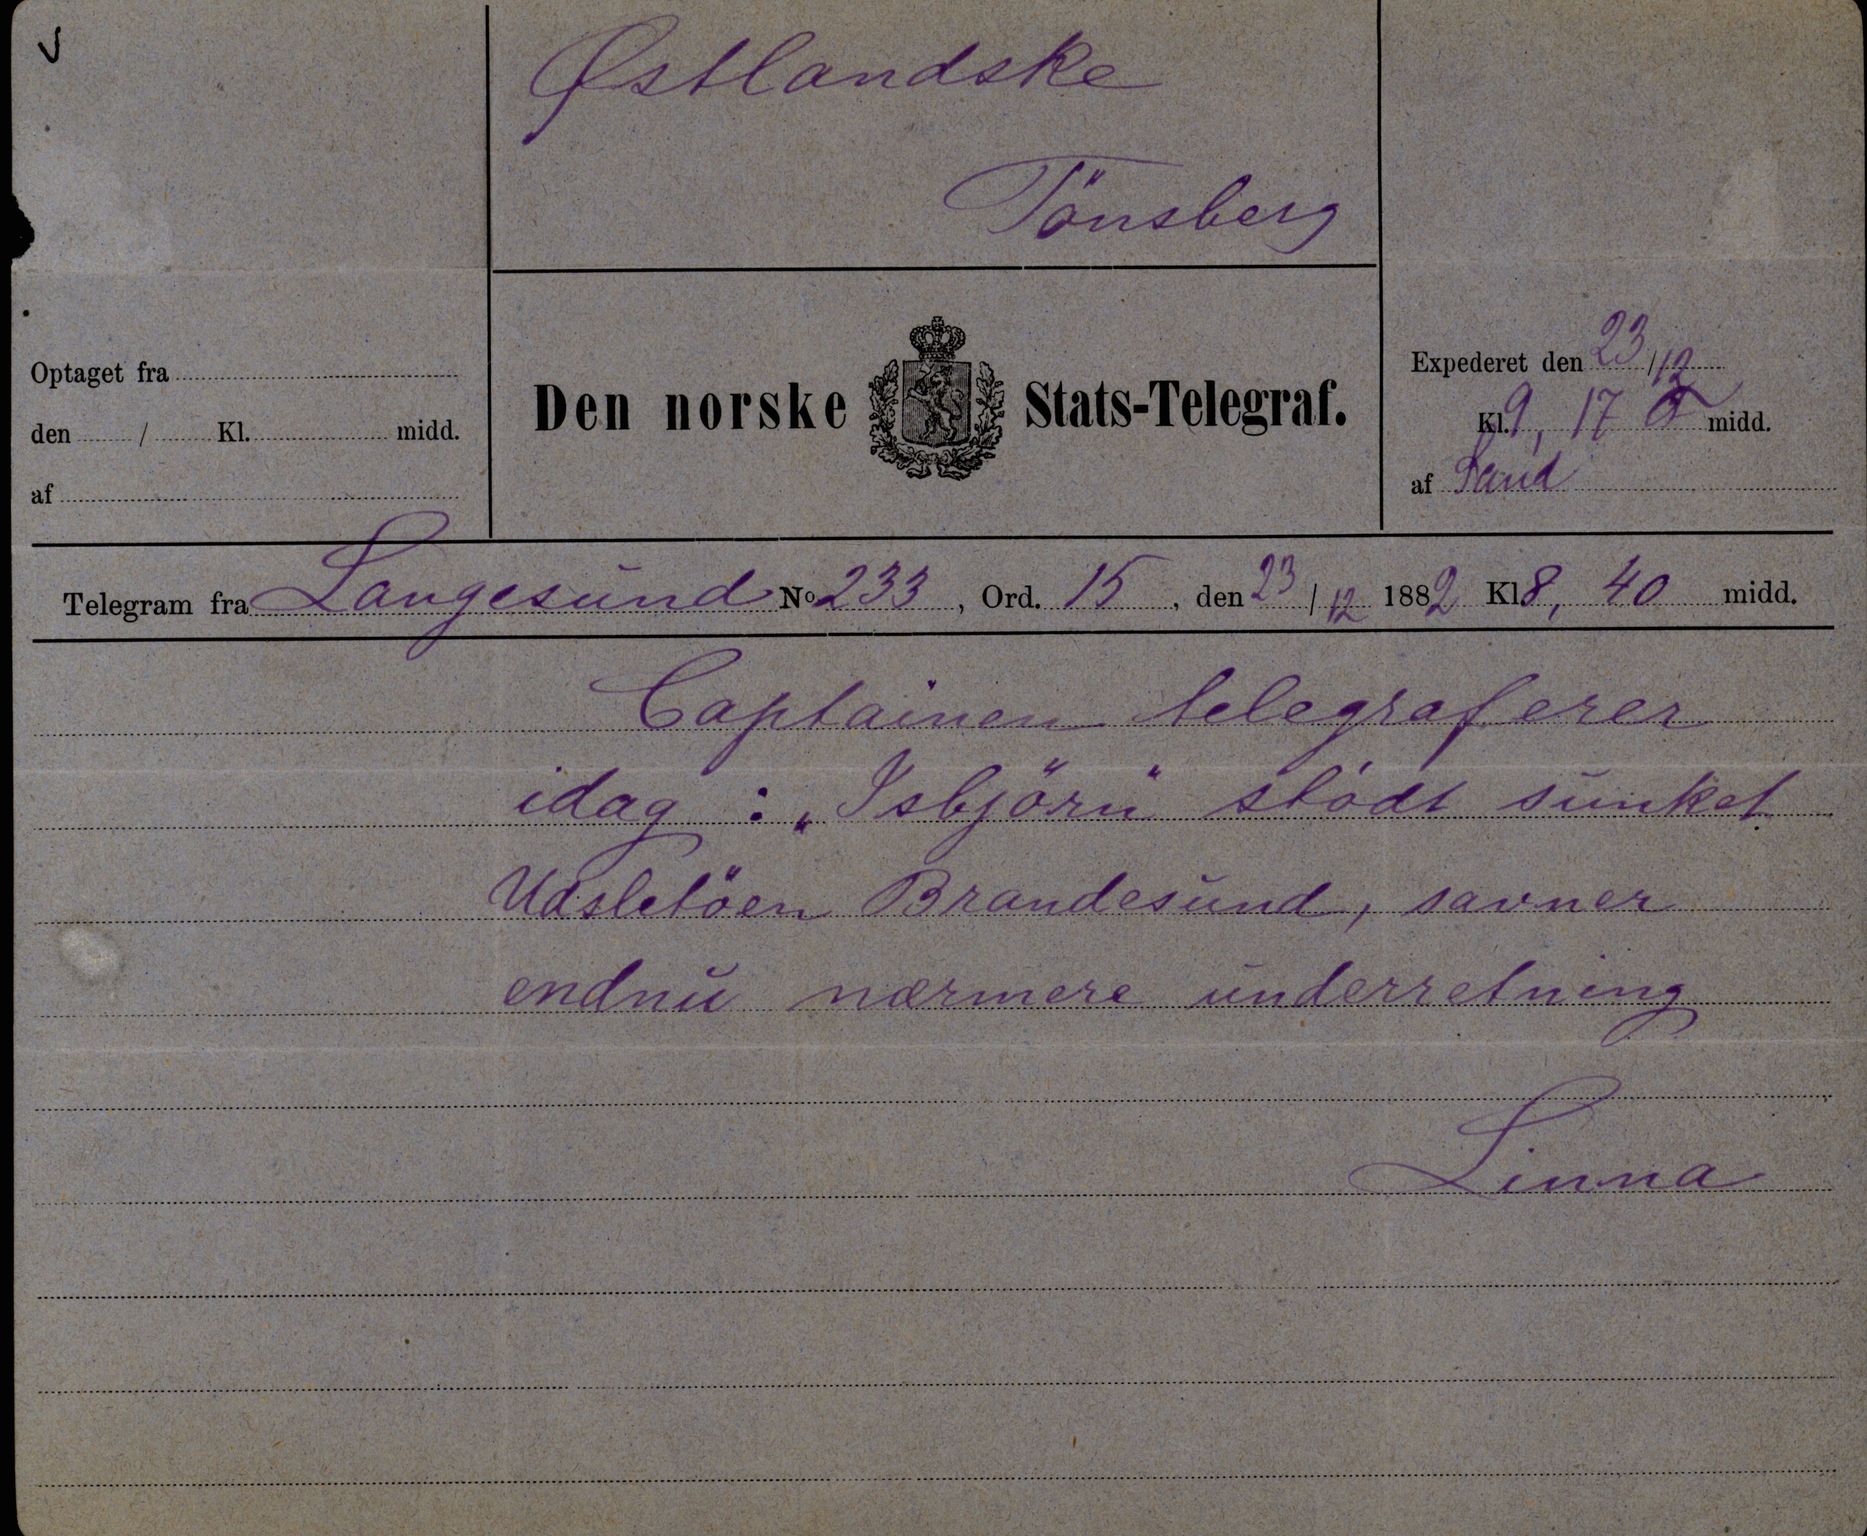 Østlandske
Tönsberg
Optaget fra
den / Kl. midd.
af
Den norske Stats-Telegraf.
Expederet den 23/12
Kl. 9, 17 F midd.
af Sand
Telegram fra Langesund No 233, Ord. 15, den 23/12 1882 Kl 8, 40 midd.
Captainen telegraferer
idag : „Isbjörn“ stödt sunket
Udsletöen Brandesund, savner
endnu nærmere underretning
Linna